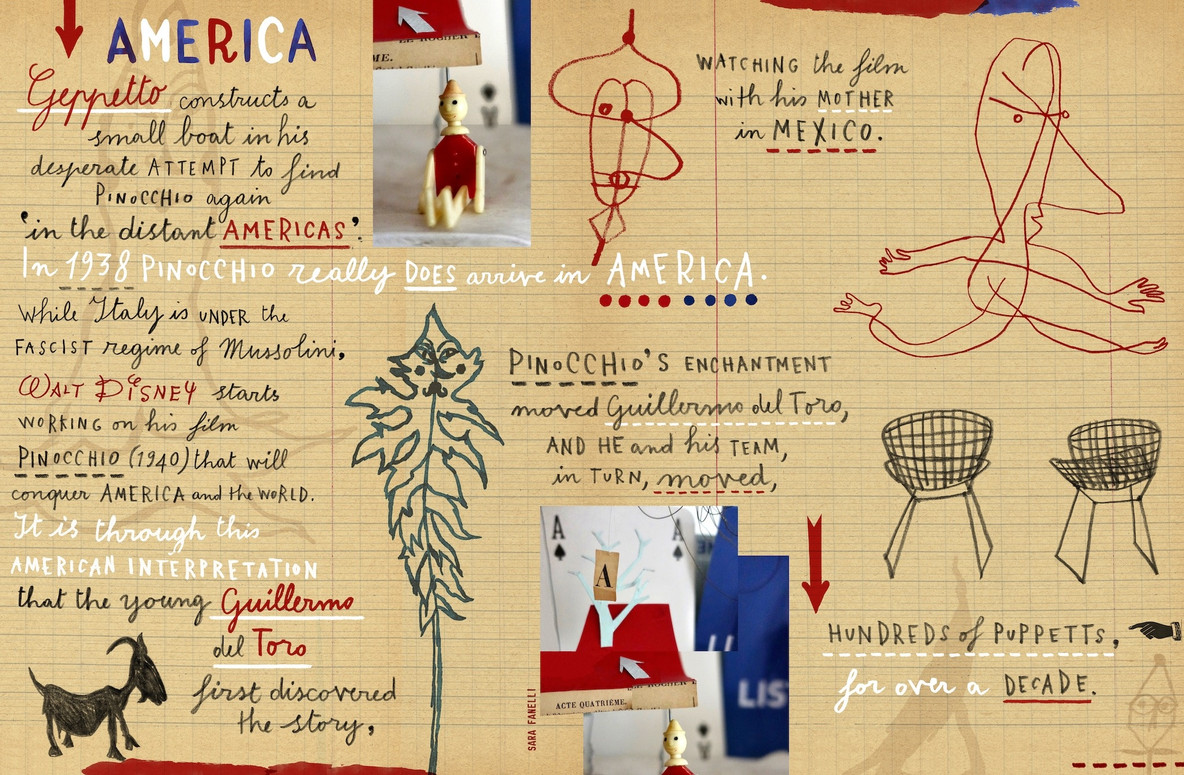 AMERICA
Geppetto constructs a
small boat in his
desperate ATTEMPT to find
PINOCCHIO again
'in the distant AMERICAS'.
In 1938 PINOCCHIO really DOES arrive in AMERICA.
While Italy is UNDER the
FASCIST regime of Mussolini,
WALT DISNEY starts
WORKING on his film
PINOCCHIO (1940) that will
conquer AMERICA and the WORLD.
It is through this
AMERICAN INTERPRETATION
that the young Guillermo
del Toro
first discovered
the story,
WATCHING the film
with his MOTHER
in MEXICO.
PINOCCHIO'S ENCHANTMENT
moved Guillermo del Toro,
AND HE and his TEAM,
in TURN, moved,
A
A
A
LIS
ACTE QUATRIÈME.
SARA FANELLI
HUNDREDS of PUPPETTS,
for over a DECADE.